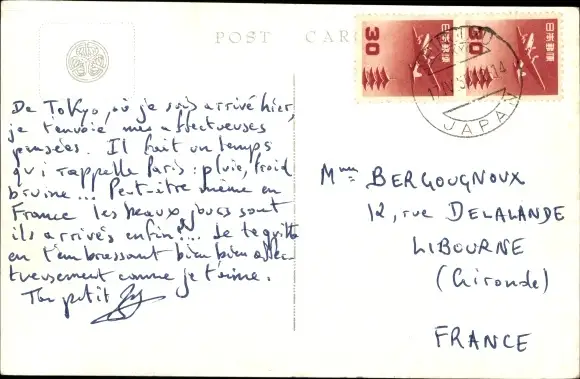 POST CARD
De Tokyo, où je suis arrivé hier,
je t'envoie mes affectueuses
pensées. Il fait un temps
qui rappelle Paris : pluie, froid
bruine... Peut-être même en
France les beaux jours sont
ils arrivés enfin ?... Je te quitte
en t'embrassant bien bien affec-
tueusement comme je t'aime.
Ton petit
30
日本郵便
30
日本郵便
JAPAN
Mme BERGOUGNOUX
12, rue DELALANDE
LIBOURNE
(Gironde)
FRANCE